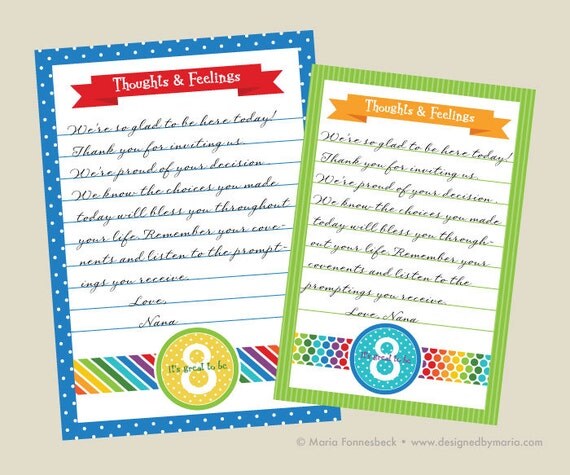 Thoughts & Feelings
We're so glad to be here today!
Thank you for inviting us.
We're proud of your decision.
We know the choices you made
today will bless you throughout
your life. Remember your cove-
nents and listen to the prompt-
ings you receive.
Love,
Nana
It's great to be
8
Thoughts & Feelings
We're so glad to be here today!
Thank you for inviting us.
We're proud of your decision.
We know the choices you made
today will bless you through-
out your life. Remember your
covenents and listen to the
promptings you receive.
Love, Nana
It's great to be
8
© Maria Fonnesbeck • www.designedbymaria.com